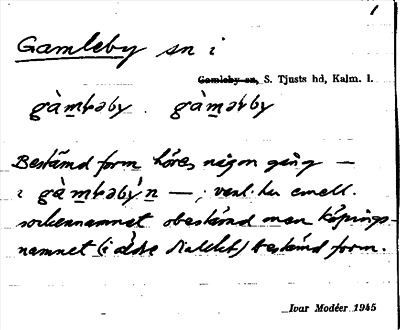 1
Gamleby sn i
Gamleby sn, S. Tjusts hd, Kalm. l.
gàmləby . gàmələby
Bestämd form höres någon gång —
i gàmləbýn — ; vanl. hu emell.
sockennamnet obestämd men köpings-
namnet (i äldre dialekt) bestämd form.
Ivar Modéer 1945